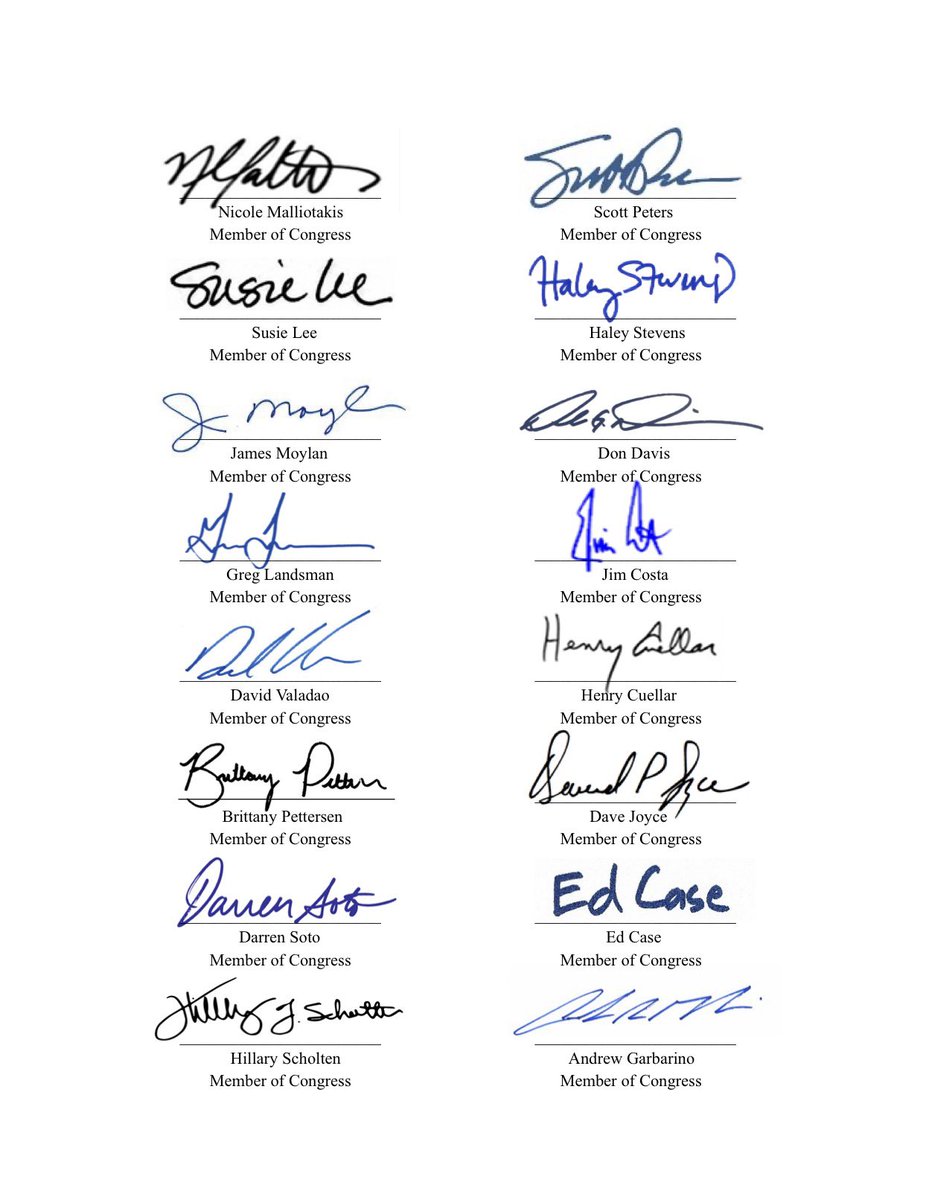 Nicole Malliotakis
Member of Congress
Scott Peters
Member of Congress
Susie Lee
Susie Lee
Member of Congress
Haley Stevens
Haley Stevens
Member of Congress
J Moyl
James Moylan
Member of Congress
Don Davis
Member of Congress
Greg Landsman
Member of Congress
Jim Costa
Member of Congress
David Valadao
Member of Congress
Henry Cuellar
Henry Cuellar
Member of Congress
Brittany Pettersen
Brittany Pettersen
Member of Congress
David P Joyce
Dave Joyce
Member of Congress
Darren Soto
Darren Soto
Member of Congress
Ed Case
Ed Case
Member of Congress
Hillary J. Scholten
Hillary Scholten
Member of Congress
Andrew Garbarino
Member of Congress